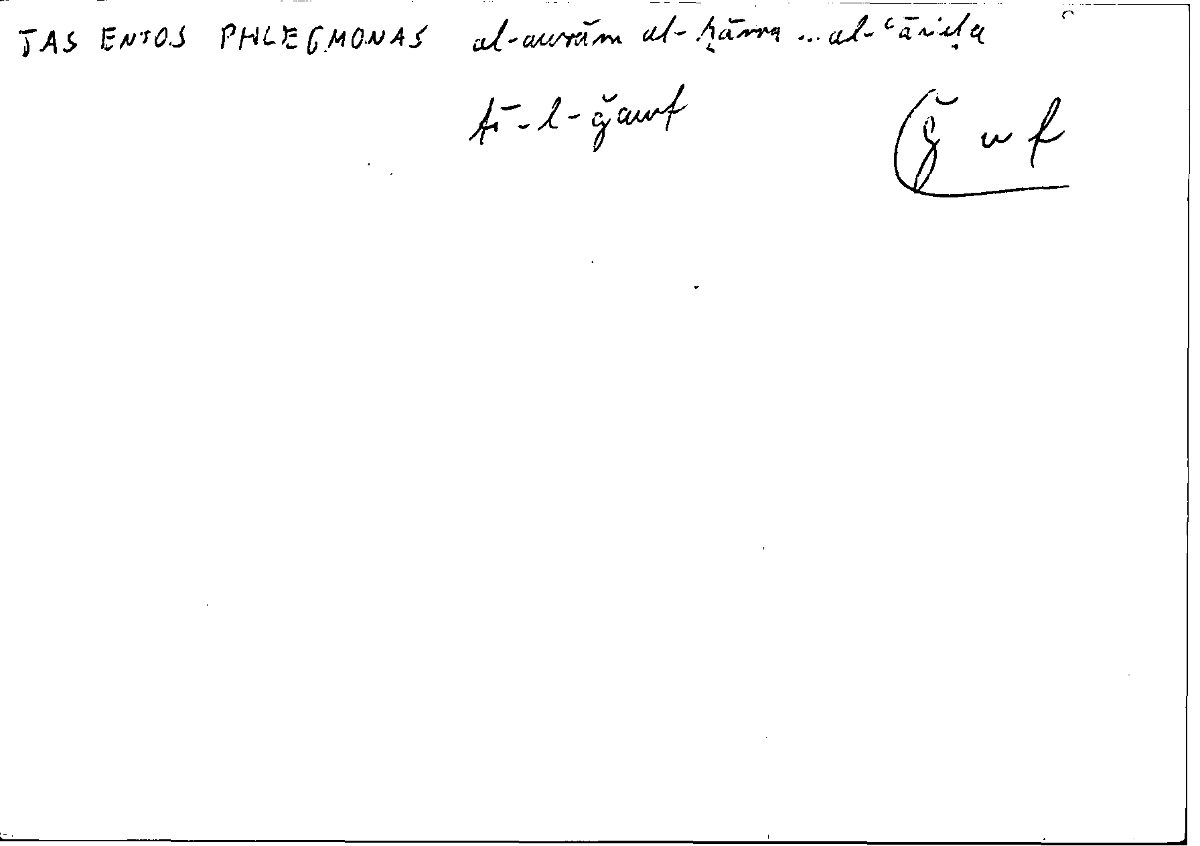 TAS ENTOS PHLEGMONAS al-awrām al-ḥārra ... al-ʿāriḍa
fī-l-ǧawf
ǧ w f